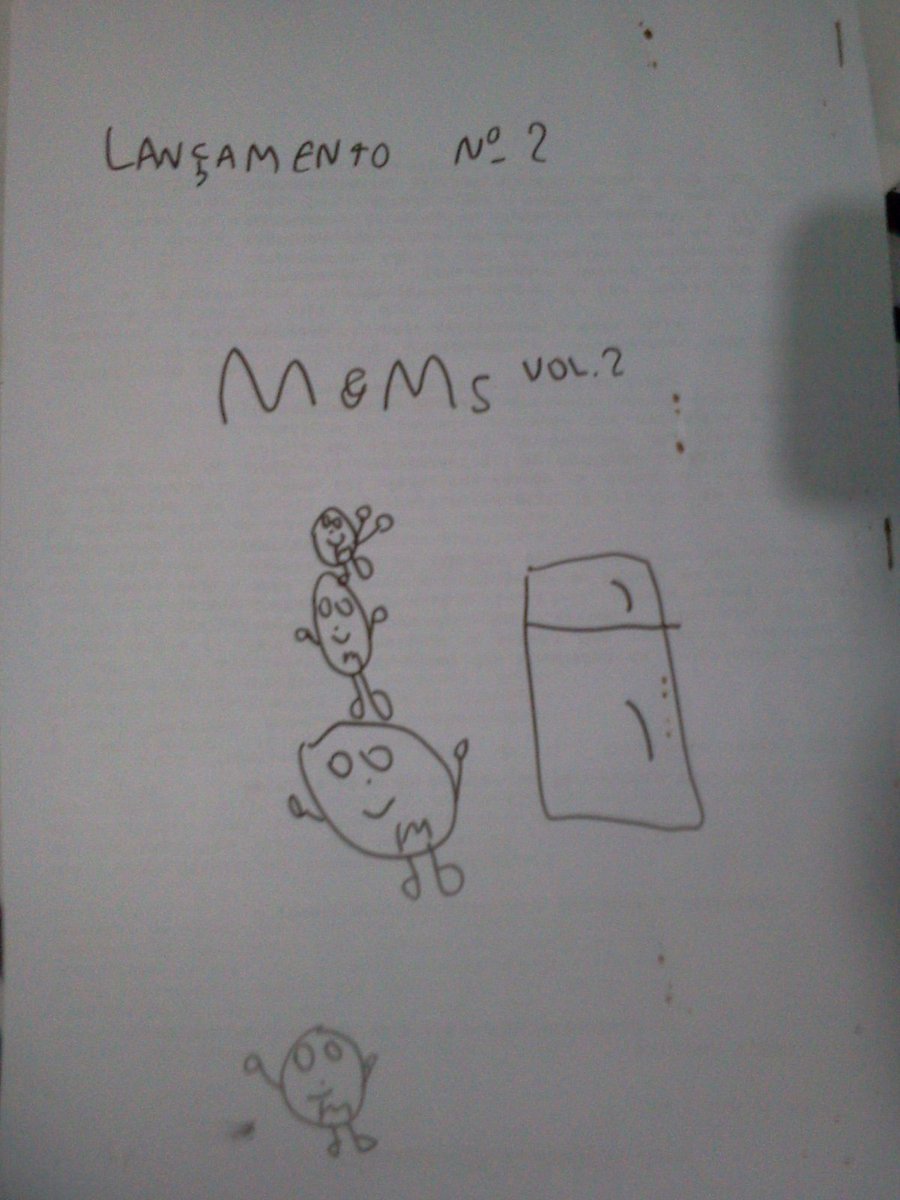 LANÇAMENTO Nº 2
M&Ms VOL.2
m
m
m
m